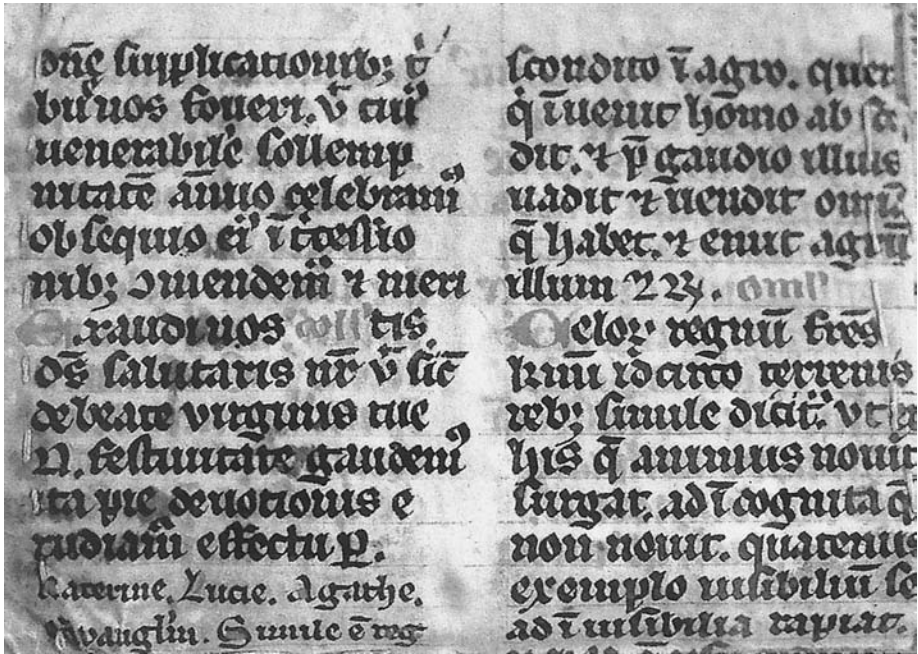 dn̄ę supplicationib; t͛
bu͛ nos foueri. v̄ cui͛
uenerabilē sollemp
nitatē ānuo celebram͛
obsequio ei͛ ī t̄cessio
nib; ɔmendem͛ ⁊ meri
Exaudi nos coll tis
ds̄ salutaris nr̄ v̄ sic̄
de beate virginis tue
N. festiuitate gaudem͛
ita pie deuotionis e
rudiam͛ effectu p̲.
katerine. Lucie. Agathe.
Ewangl'iu. Simile ē reg
scondito ī agro. quem
q̄ īuenit homo ab
dit. ⁊ p̄ gaudio illius
uadit ⁊ uendit
q̄ habet. ⁊ emit agrū
illum ⁊ R⁊. Omł
Celor͛ regnū fr̄es
km̄i idcirco terrenis
reb; simile dicit͛. vt ex
his q̄ animus nouit
surgat. ad īcognita q̄
non nouit. quatenus
exemplo uisibiliū se
ad īuisibilia rapiat.